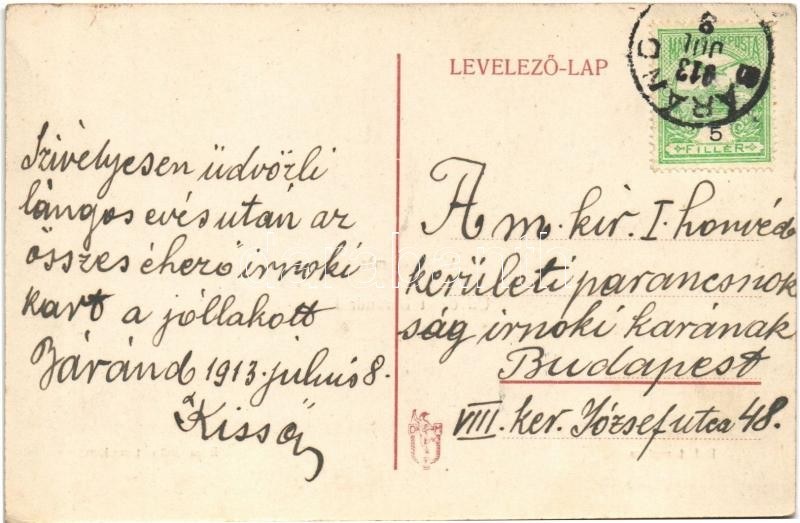 LEVELEZŐ-LAP
MAGYAR KIR. POSTA
5
FILLÉR
BÁRÁND
913
JUL
9
Szivélyesen üdvözli
lángos evés után az
összes éhező irnoki
kart a jóllakott
Báránd 1913. július 8.
Kiss
A m. kir. I. honvéd
kerületi parancsnok
ság irnoki karának
Budapest
VIII. ker. József utca 48.